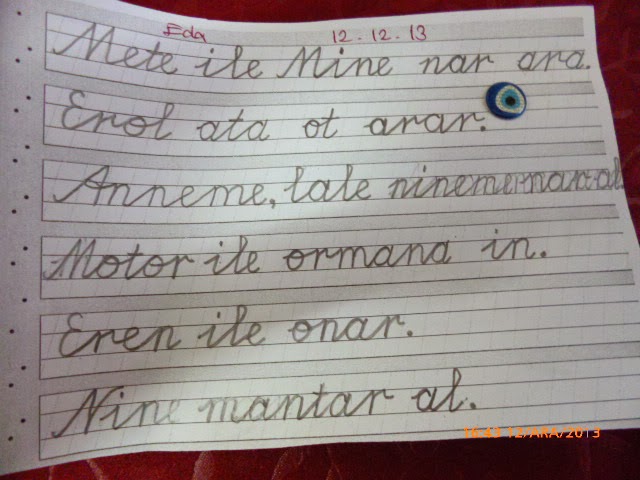 Eda 12.12.13
Mete ile Mine nar ara.
Erol ata ot arar.
Anneme, lale nineme nar al
Motor ile ormana in.
Eren ile onar.
Nine mantar al.
12/ARA/2013